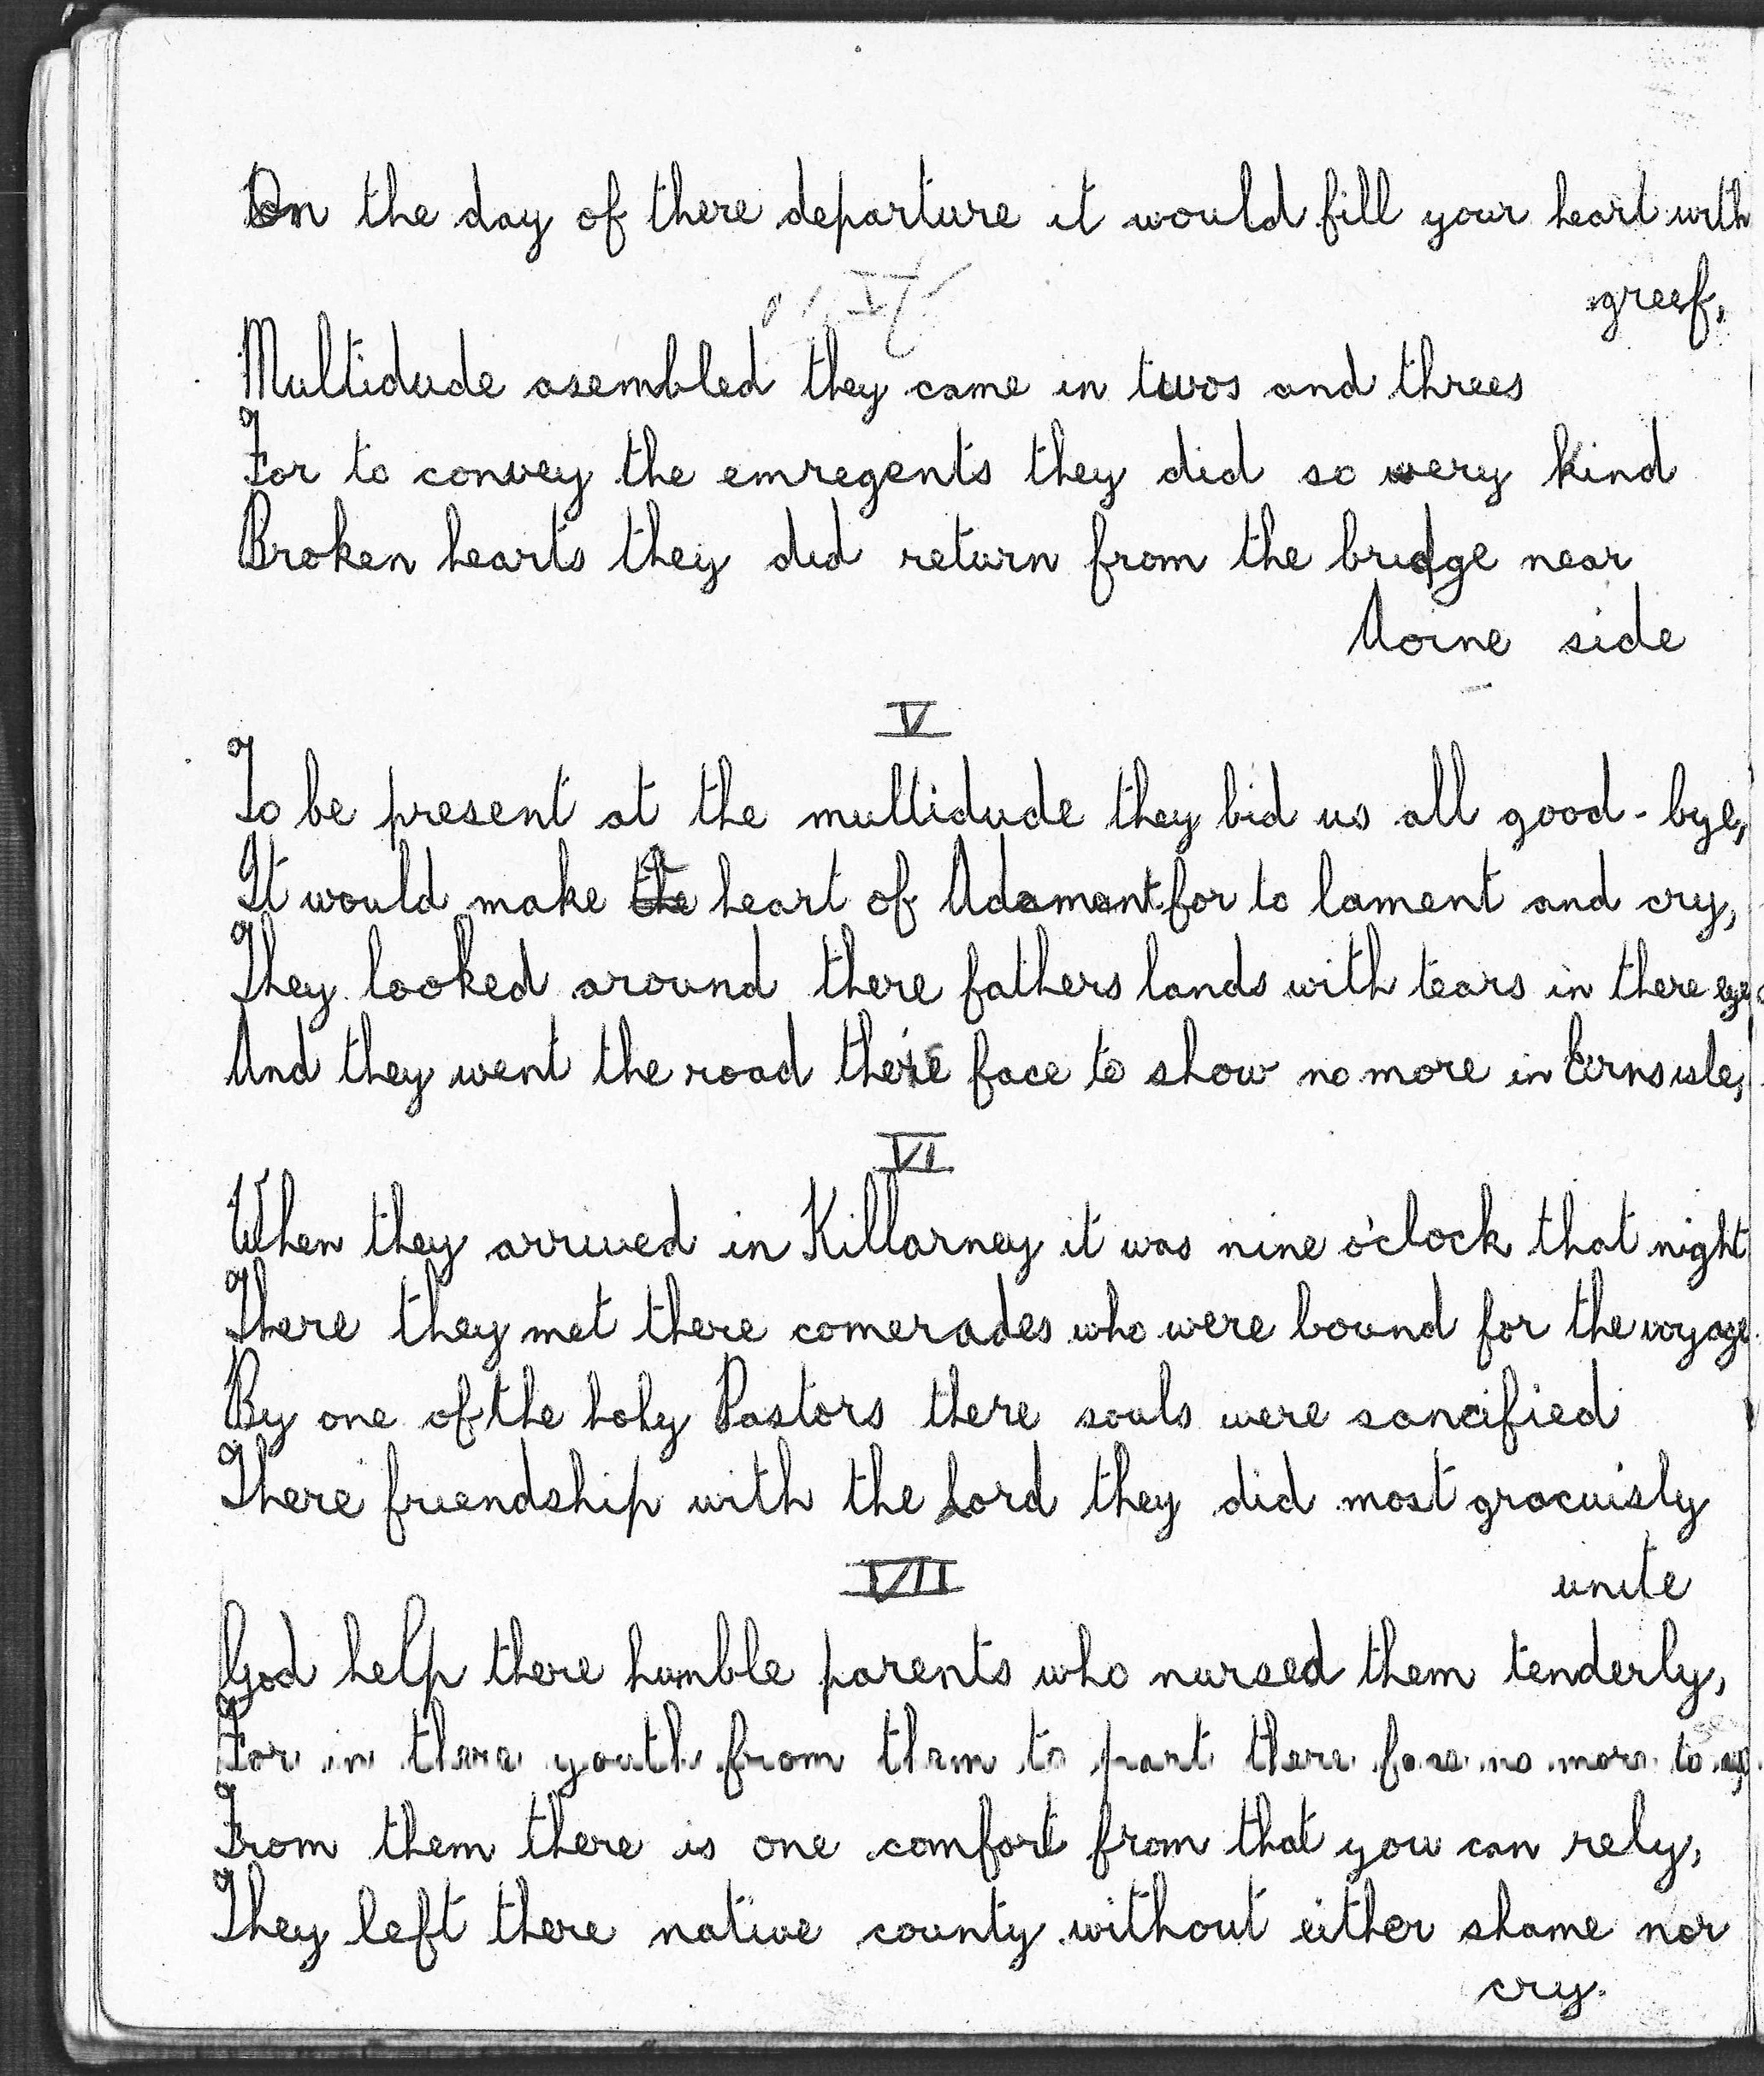 On the day of there departure it would fill your heart with
greef,
IV
Multidude asembled they came in twos and threes
For to convey the emregents they did so very kind
Broken hearts they did return from the bridge near
Aoine side
V
To be present at the multidude they bid us all good-bye,
It would make the heart of Adamant for to lament and cry,
They looked around there fathers lands with tears in there eyes
And they went the road there face to show no more in Eirns isle,
VI
When they arrived in Killarney it was nine o'clock that night
There they met there comerades who were bound for the voyage.
By one of the holy Pastors there souls were sancified
There friendship with the Lord they did most gracuisly
unite
VII
God help there humble parents who nursed them tenderly,
For in there youth from them to part there face no more to
From them there is one comfort from that you can rely,
They left there native county without either shame nor
cry.